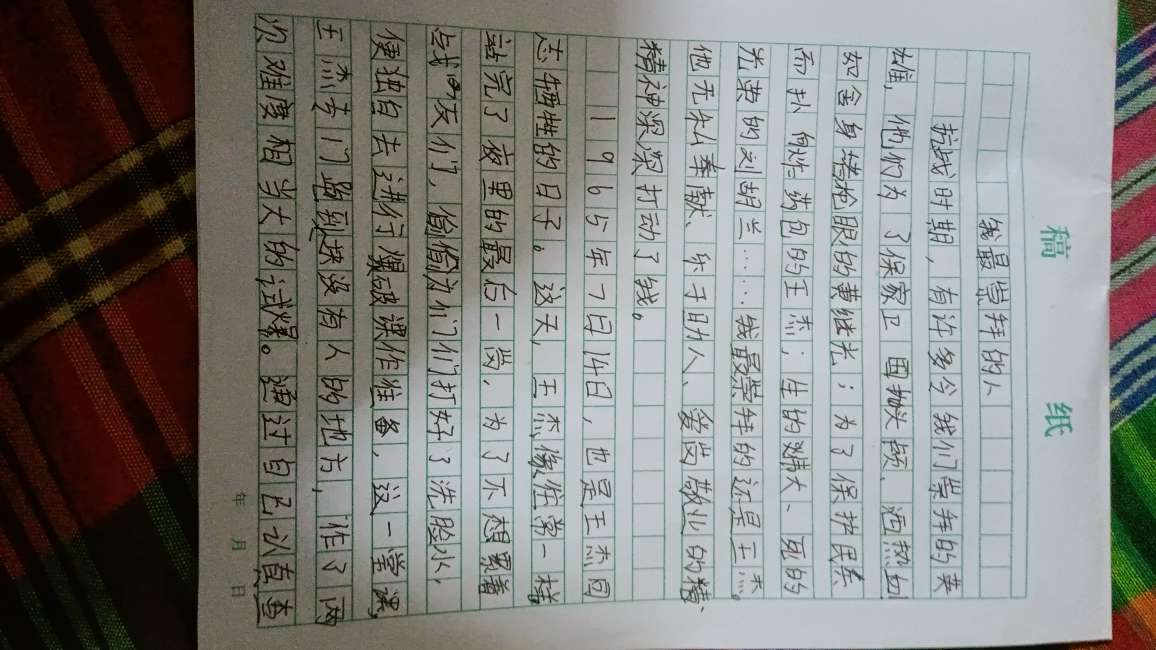 稿 纸
我最崇拜的人
抗战时期，有许多令我们崇拜的英
雄，他们为了保家卫国抛头颅、洒热血
如舍身堵枪眼的黄继光；为了保护民兵
而扑向炸药包的王杰；生的伟大、死的
光荣的刘胡兰……我最崇拜的还是王杰。
他无私奉献、乐于助人、爱岗敬业的精
精神深深打动了我。
1965年7日14日，也是王杰同
志牺牲的日子。这天，王杰像往常一样
站完了夜里的最后一岗，为了不想累着
战友们，偷偷为他们打好了洗脸水，
便独自去进行爆破课作准备，这一堂课，
王杰专门跑到这没有人的地方，作了两
次难度相当大的试爆。通过自己认真查
年 月 日